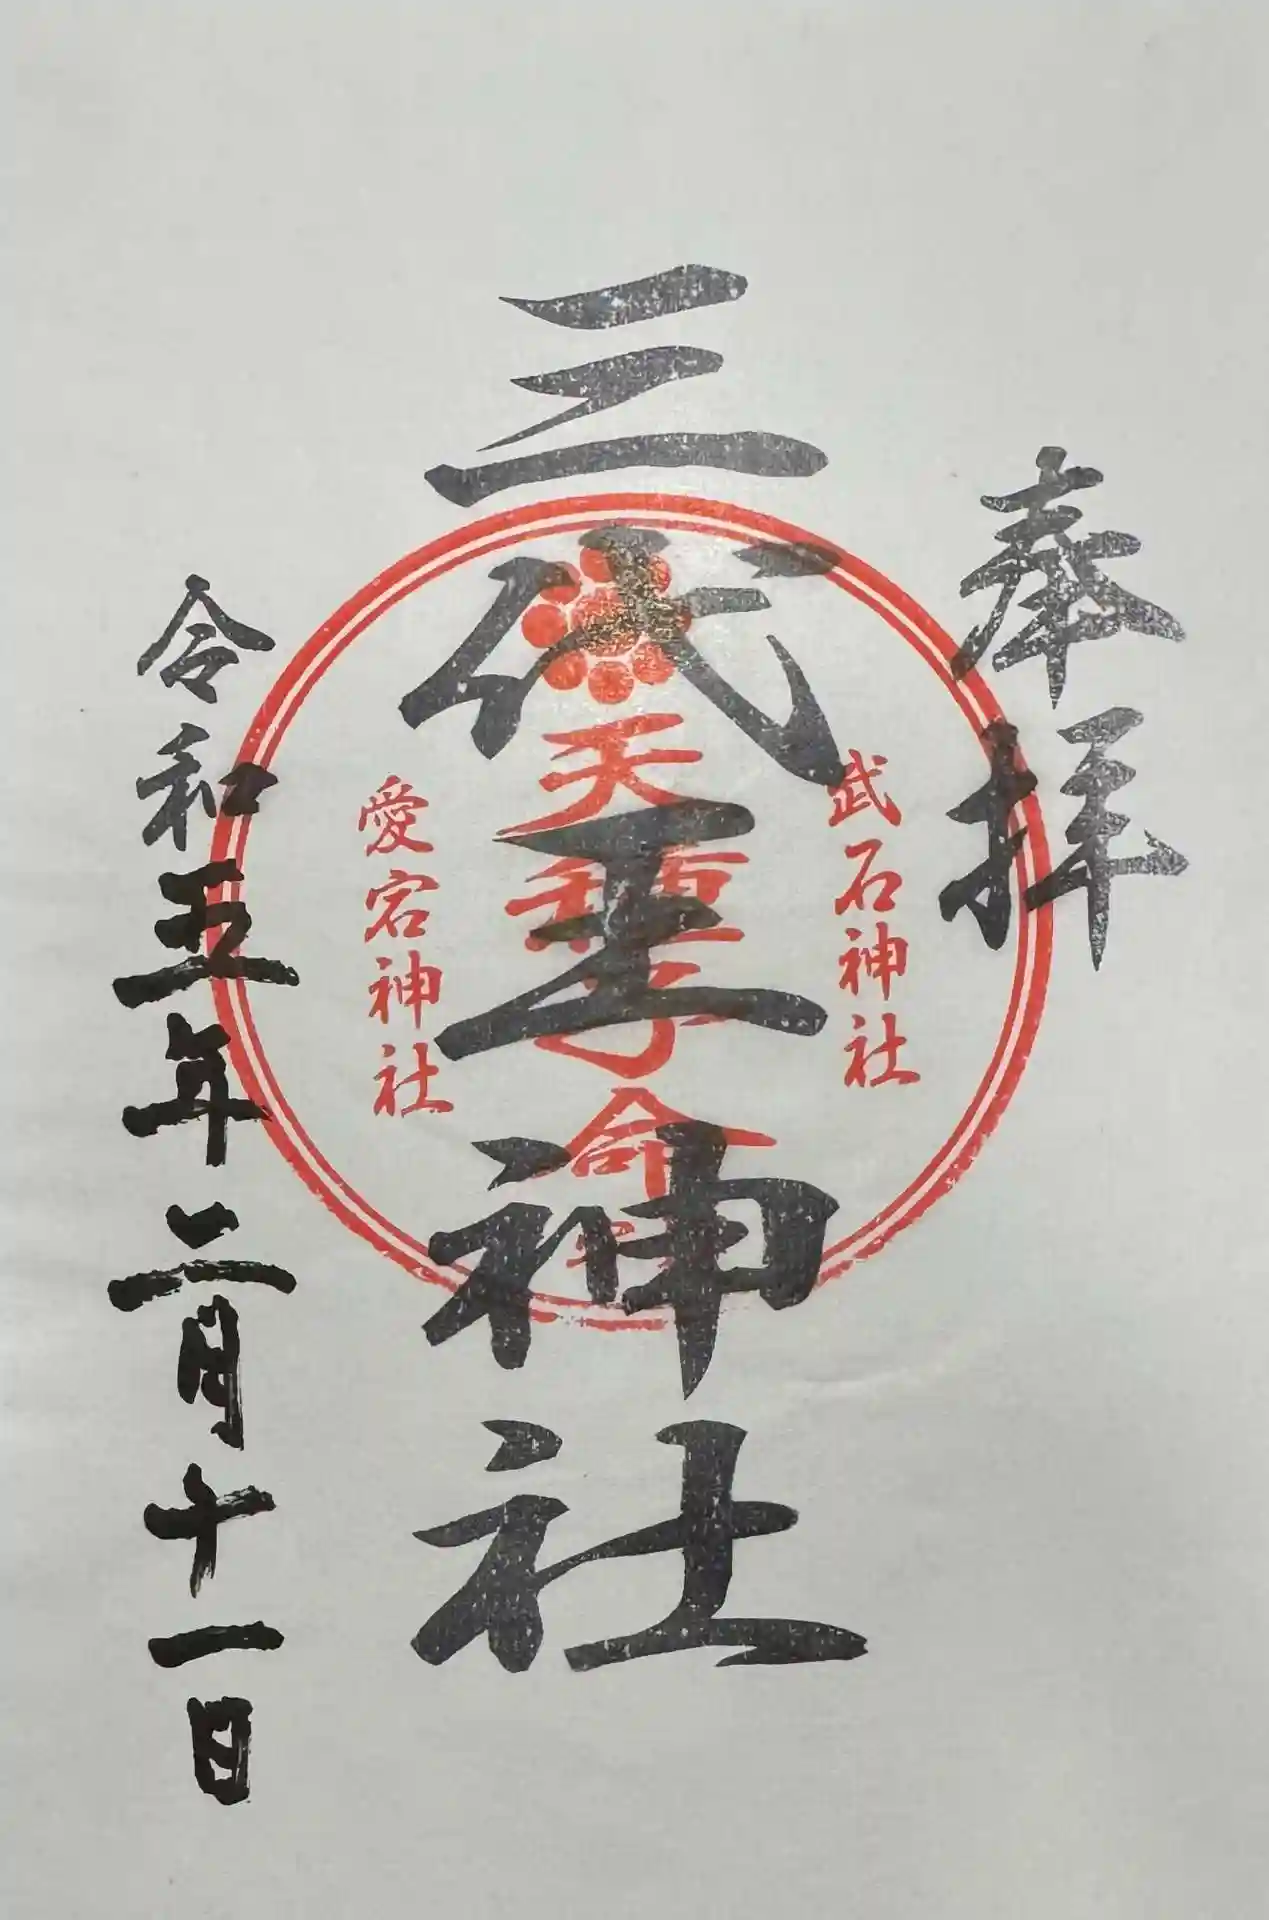 奉拝
三代王神社
武石神社
天種子命
愛宕神社
令和五年二月十一日